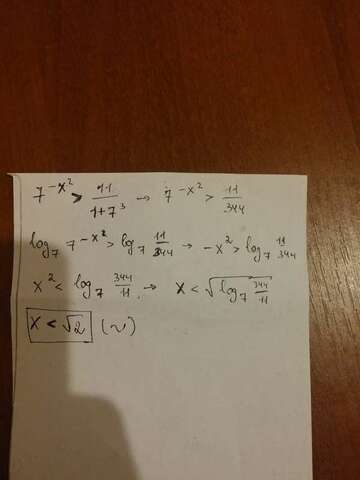 7^{-x^2} > 11/(1+7^3) → 7^{-x^2} > 11/344
log_7 7^{-x^2} > log_7 11/344 → -x^2 > log_7 11/344
x^2 < log_7 344/11 → x < √(log_7 344/11)
x < √2 (~)